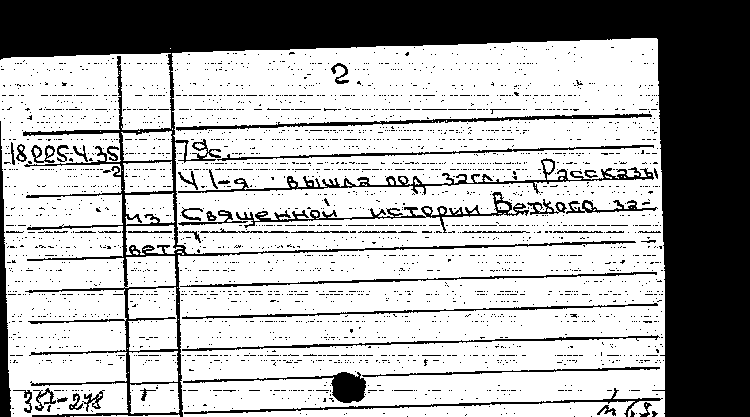 2.
18.225.4.35 79с.
-2
Ч. 1-я вышла под загл.: "Рассказы
из Священной истории Ветхого за-
вета".
357-278